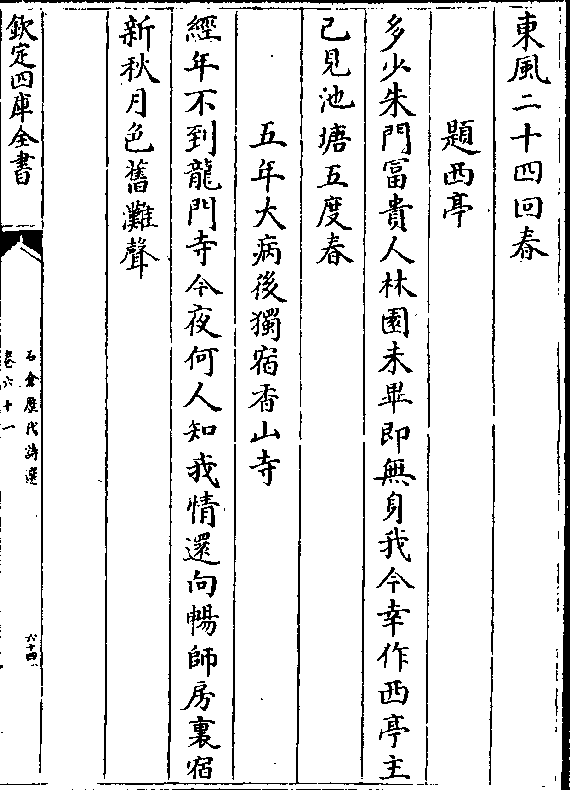 東風二十四回春
題西亭
多少朱門富貴人林園未畢即無身我今幸作西亭主
已見池塘五度春
五年大病後獨宿香山寺
經年不到龍門寺今夜何人知我情還向暢師房裏宿
新秋月色舊灘聲
欽定四庫全書
石倉歷代詩選
卷六十一
六十四